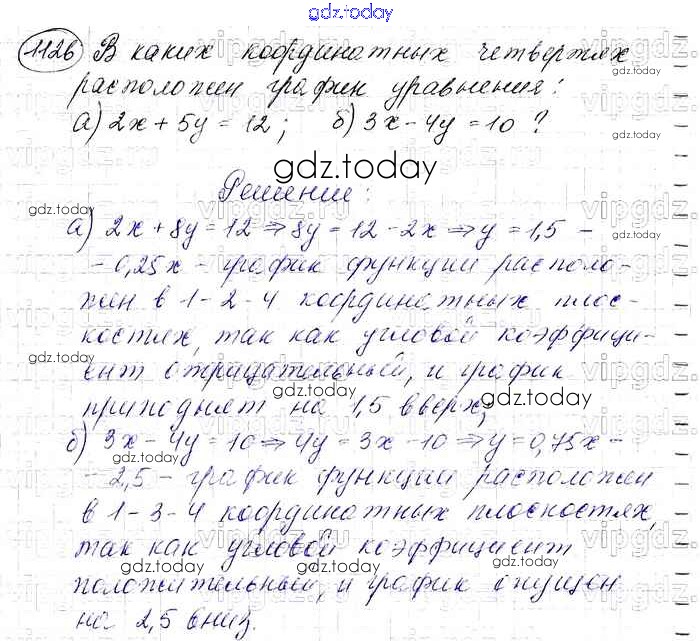 gdz.today
1126 В каких координатных четвертях
gdz.today
расположен график уравнения:
а) 2x + 5y = 12; б) 3x - 4y = 10 ?
gdz.today
gdz.today
Решение:
gdz.today
а) 2x + 8y = 12 ⇒ 8y = 12 - 2x ⇒ y = 1,5 -
- 0,25x - график функции располо-
gdz.today
жен в 1-2-4 координатных плос-
костях, так как угловой коэффици-
gdz.today
ент отрицательный, и график
gdz.today
приподнят на 1,5 вверх;
б) 3x - 4y = 10 ⇒ 4y = 3x - 10 ⇒ y = 0,75x -
gdz.today
- 2,5 - график функции расположен
в 1-3-4 координатных плоскостях,
gdz.today
так как угловой коэффициент
gdz.today
положительный, и график опущен
gdz.today
на 2,5 вниз.